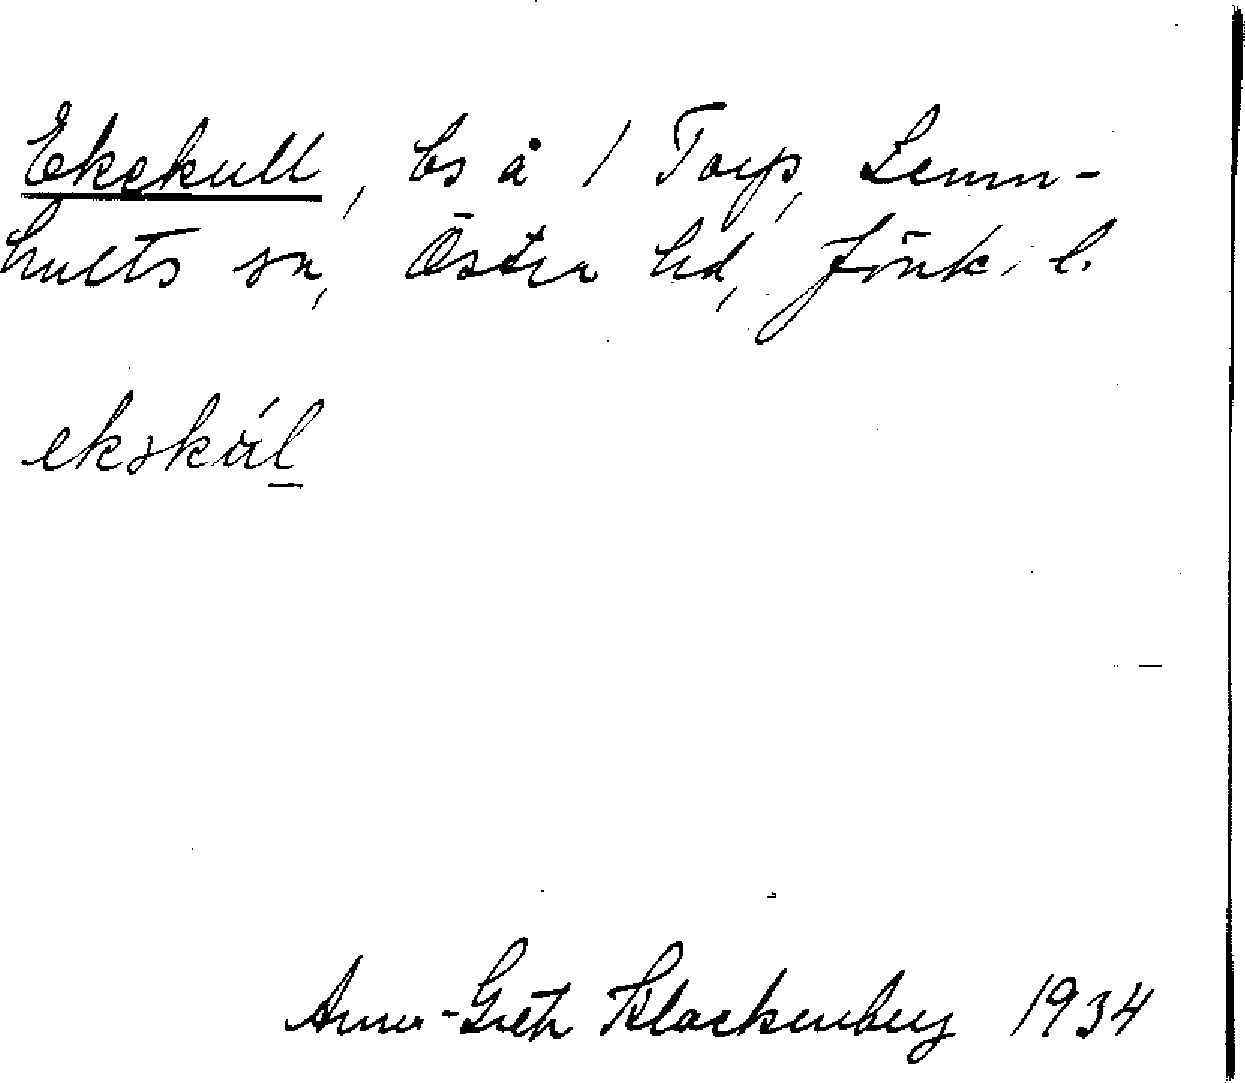 Ekskull, bs å 1 Torp, Lemn-
hults sn, Östra hd, Jönk. l.
ekskúl
Anna-Greth Klackenberg 1934